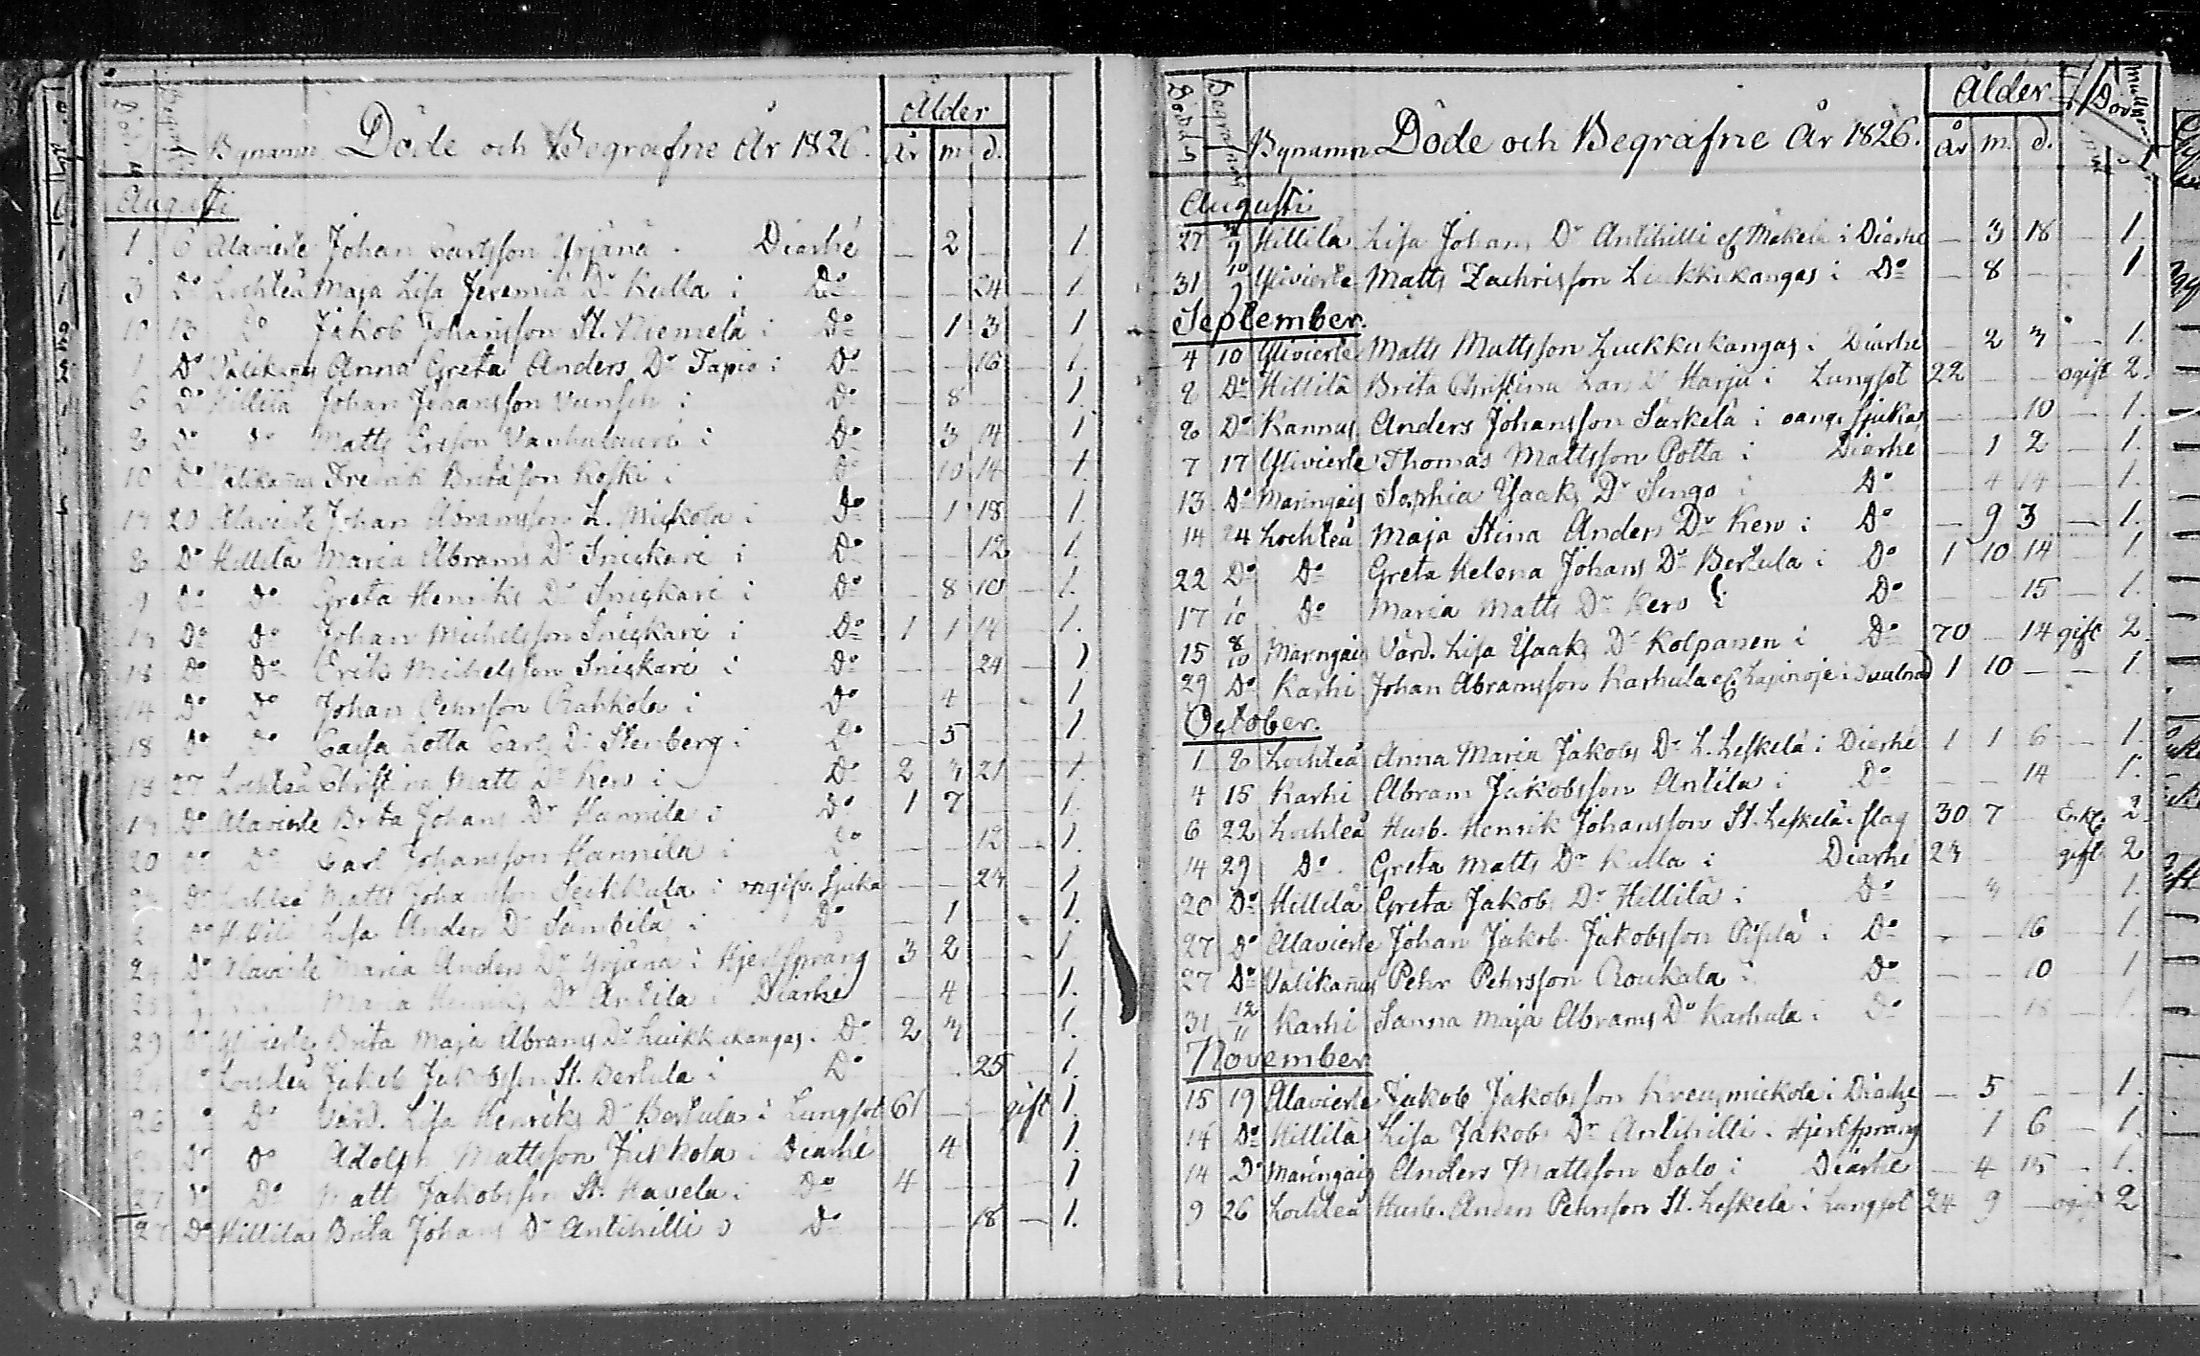 Bynamn Döde och Begrafne År 1826.
Ålder
År m. d.
Augusti
1 6 Alavierke Johan Carlsson Yrjänä. Diarhé — 2 — 1.
3 Do Lochteå Maja Lisa Jeremiä Dr Kulla i Do 24 1.
10 13 Do Jakob Johansson St. Niemelä i Do 1 3 1
1 Do Välikañus Anna Greta Anders Dr Tapio i Do 16 1.
6 Do Hillilä Johan Johansson i Do 8 1.
8 Do Do Matts Ersson i Do 3 14 1
10 Do Välikañus Fredrik Britason Koski i Do 10 14 1
19 20 Alavierke Johan Abramsson L. Mickola i Do 1 18 1.
8 Do Hillilä Maria Abrams Dr Snickari i Do 12 1.
9 Do Do Greta Henriks Dr Snickari i Do 8 10 1.
19 Do Do Johan Michelsson Snickari i Do 1 1 14 1.
18 Do Do Erik Michelsson Snickari i Do 24 1
14 Do Do Johan Pehrsson Rahkola i Do 4 1
18 Do Do Caisa Lotta Carls Dr Stenberg i Do 5 1.
18 27 Lochteå Christina Matts Dr Kero i Do 2 3 21 1
19 Do Alavierke Brita Johans Dr Hannila i Do 1 7 1.
20 Do Do Carl Johansson Hannila i Do 12 1.
Do Lochteå Matts Johansson i ongifv. Sjuka 24 1
Do Hillilä Lisa Anders Dr i Do 1 1.
24 Do Alavierke Maria Anders Dr Yrjänä i Hjertsprång 3 2 1
25 Maria Henriks Dr Antila i Diarhé 4 1.
29 Do Ylivierke Brita Maja Abrams Dr Luckkukangas. Do 2 3 1.
Lochteå Jakob Jakobsson St. Bertula i Do 25 1.
26 Do Värd. Lisa Henriks Dr Bertulas i Lungsot 61 gift 1
Do Do Adolph Mattsson Juckola i Diarhé 4 1.
27 Do Do Matts Jakobsson St. Havela i Do 4 1
27 Do Hillilä Brita Johans Dr Antihilli i Do 18 1.
Bynamn Döde och Begrafne År 1826.
Ålder
År m. d.
Augusti
27 Hillilä Lisa Johans Dr Antihilli ef Mäkelä i Diarhé — 3 18 — 1.
31 Ylivierke Matts Zachrisson Luckkukangas i Do — 8 1
September.
4 10 Ylivierke Matts Mattsson Luckkukangas i Diarhé 2 3 1.
8 Do Hillilä Brita Christina Lars Dr Harju i Lungsot 22 ogift 2.
8 Do Kannus Anders Johansson Särkelä i oang. Sjuka 10 1.
7 17 Ylivierke Thomas Mattsson Potta i Diarhé 1 2 1.
13 Do Maringais Sophia Ysaaks Dr Singo i Do 4 14 1.
14 24 Lochteå Maja Stina Anders Dr Kero i Do — 9 3 — 1.
22 Do Do Greta Helena Johans Dr Bertula i Do 1 10 14 1.
17 1/10 Do Maria Matts Dr Kero i Do 15 1.
15 8/10 Maringais Värd. Lisa Ysaaks Dr Kolpanen i Do 70 — 14 gift 2.
29 Do Karhi Johan Abramsson Karhula ef Lapinoje i 1 10 — — 1.
October.
1 8 Lochteå Anna Maria Jakobs Dr L. Leskelä i Diarhé 1 1 6 — 1.
4 15 Karhi Abram Jakobsson Antila i Do 14 1.
6 22 Lochteå Husb. Henrik Johansson St. Leskelä i slag 30 7 Enkl. 2.
14 29 Do. Greta Matts Dr Kulla i Diarhé 23 gift 2
20 Do Hillilä Greta Jakobs Dr Hillilä i Do 3 1.
27 Do Alavierke Johan Jakob Jakobsson i Do 16 1.
27 Do Välikañus Pehr Pehrsson Roukala i Do 10 1
31 12/11 Karhi Sanna Maja Abrams Dr Karhula i Do 1.
November
15 19 Alavierke Jakob Jakobsson i Diarhé — 5 1.
14 Do Hillilä Lisa Jakobs Dr Antihilli i Hjertsprång 1 6 1.
14 Do Maringais Anders Mattsson Salo i Diarhé — 4 15 1.
9 26 Lochteå Husb. Anders Pehrsson St. Leskelä i Lungsot 24 9 — ogift 2